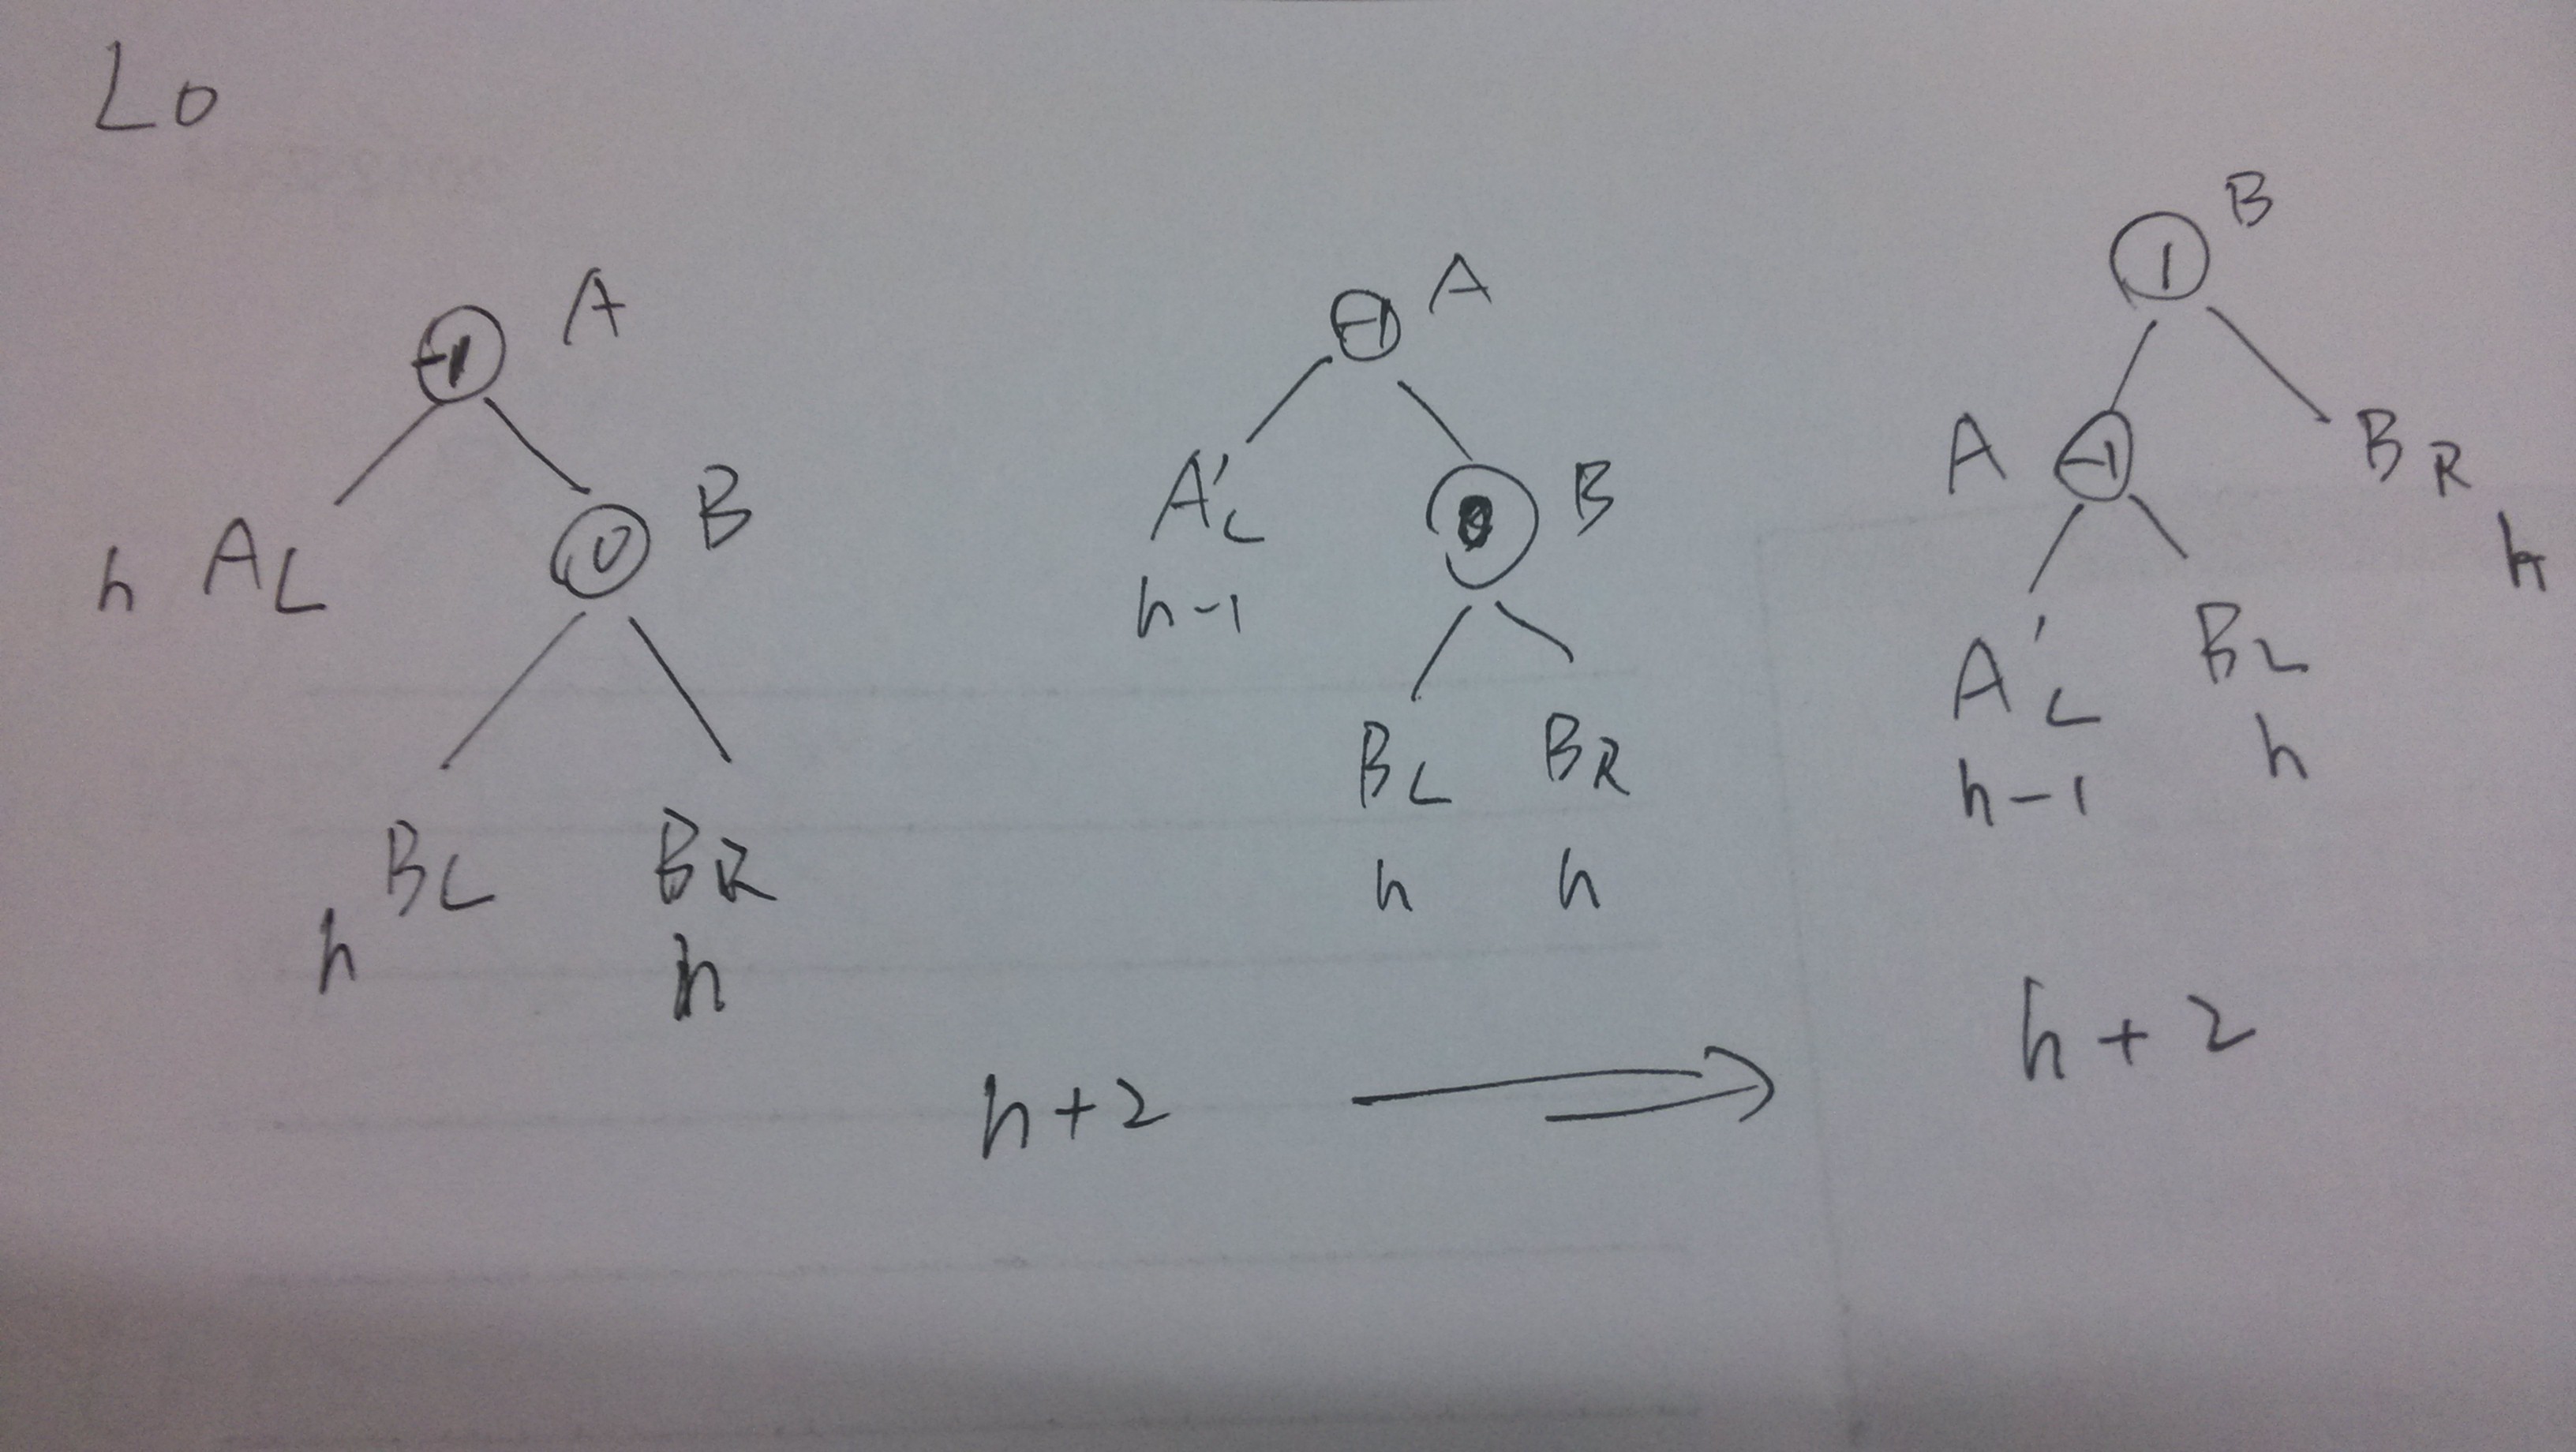 L0
-1 A
h AL
0 B
h BL
BR
h
-1 A
A'L
h-1
0 B
BL BR
h h
h+2
1 B
A -1
BR
h
A'L
h-1
BL
h
h+2